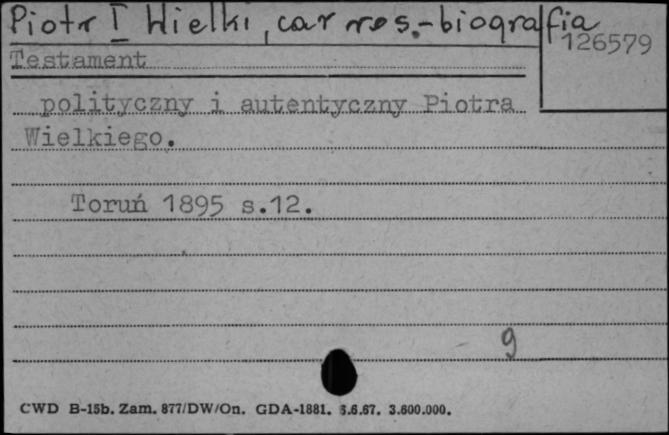 Piotr I Wielki, car ros.-biografia
126579
Testament
polityczny i autentyczny Piotra
Wielkiego.
Toruń 1895 s.12.
9
CWD B-15b. Zam. 877/DW/On. GDA-1881. 6.6.67. 3.600.000.